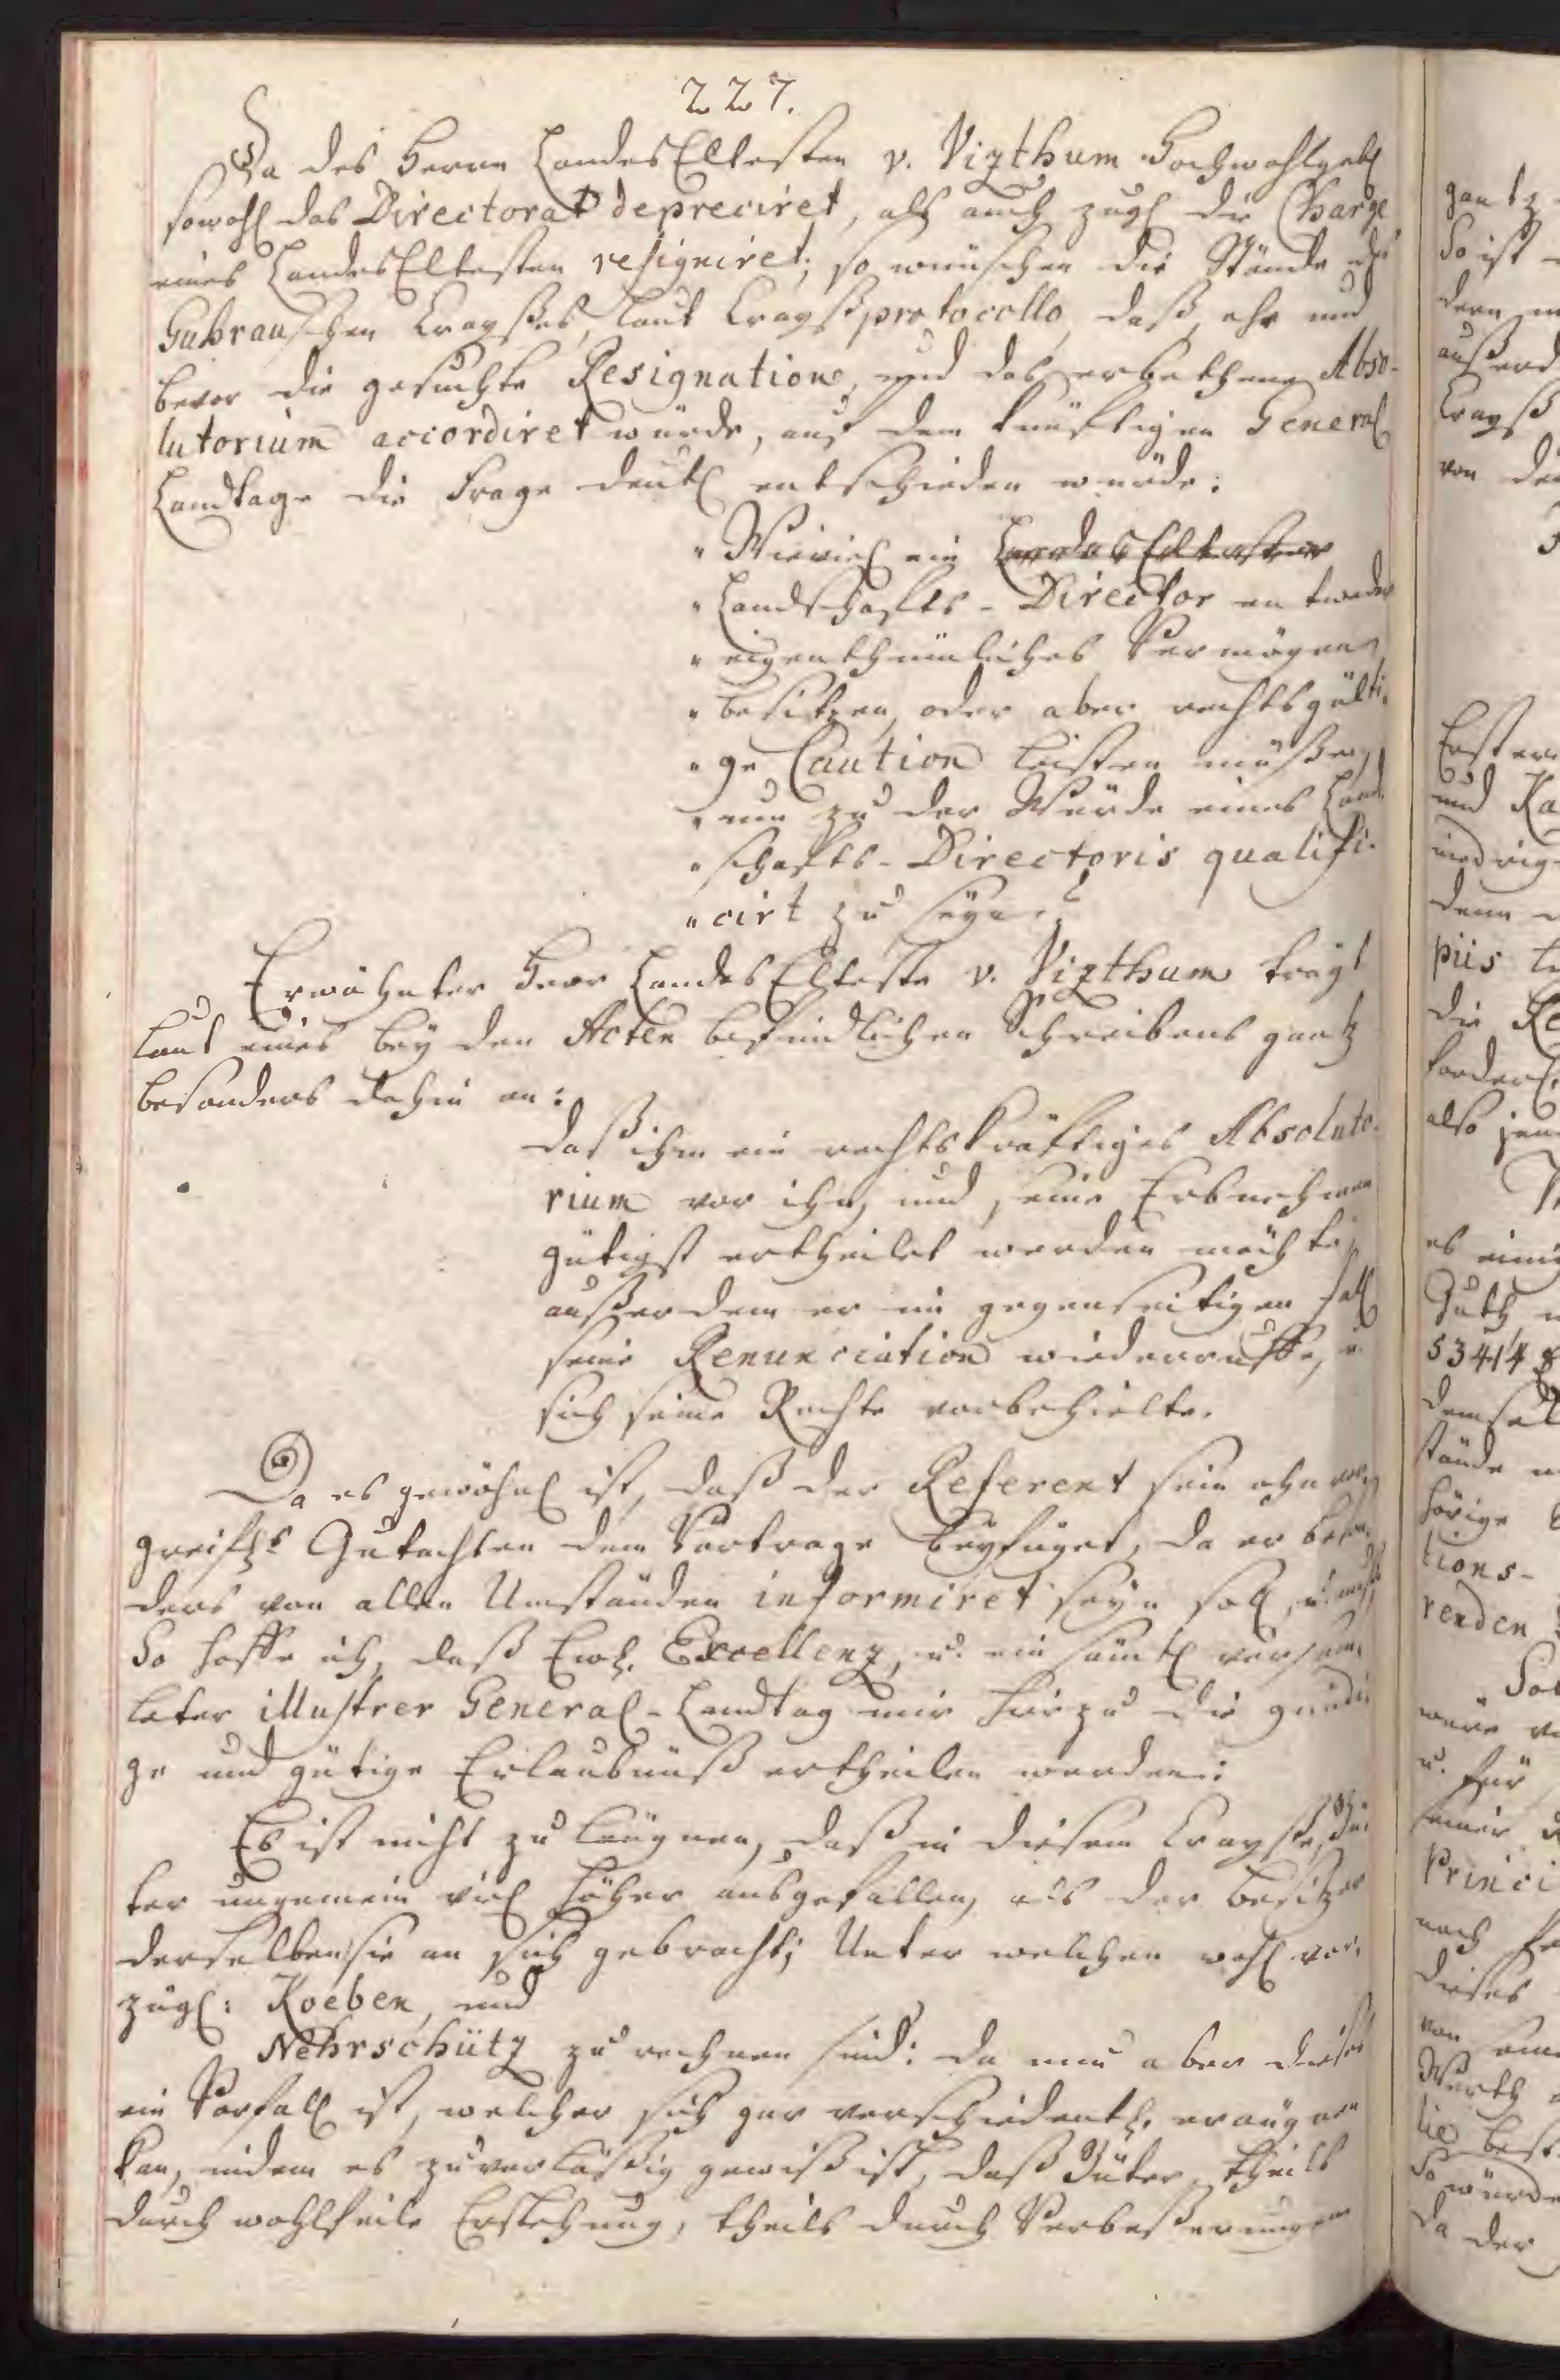 227.
Da des Herrn LandesEltesten v. Vizthum Hochwohlgeb.
sowohl das Directorat depreciret, als auch zugl. die Charge
eines LandesEltesten resigniret; so wünschen die Stände des
Guhrauschen Crayßes, laut Crayßprotocollo, daß, ehe und
bevor die gesuchte Resignation, und das erbethene Abso-
lutorium accordiret würde, auf dem künftigen General
Landtage die Frage deutl. entschieden würde:
" Wieviel ein LandesEltester
" Landschafts-Director entweder
" eigenthümliches Vermögen
" besitzen, oder aber rechtsgülti-
" ge Caution leisten müßen,
" um zu der Würde eines Land-
" schafts-Directoris qualifi-
" cirt zu seyn?
Erwähnter Herr LandesElteste v. Vizthum trägt
laut eines bey den Acten befindlichen Schreibens gantz
besonders dahin an:
daß ihm ein rechtskräftiges Absoluto-
rium vor ihn, und seine Erbnehmer
gütigst ertheilet werden möchte,
außerdem er im gegenseitigen Fall
seine Renunciation wiederruffe, u.
sich seine Rechte vorbehielte.
Da es gewöhnl. ist, daß der Referent sein ohnvor-
greifl. Gutachten dem Vortrage beyfüget, da er beson-
ders von allen Umständen informiret seyn soll, u. muß,
So hoffe ich, daß Ew. Excellenz, u. ein sämtl. versam-
leter illustrer General-Landtag mir hierzu die gnädi-
ge und gütige Erlaubnüß ertheilen werden:
Es ist nicht zu läugnen, daß in diesem Crayße, Gü-
ter ungemein viel höher ausgefallen, als der Besitzer
derselben sie an sich gebracht; Unter welchen wohl vor-
zügl: Koeben, und
Nehrschütz zu rechnen sind: da nun aber dieses
ein Vorfall ist, welcher sich gar verschiedentl. eräugnen
kan, indem es zuverläßig gewiß ist, daß Güter, theils
durch wohlfeile Erstehung, theils durch Verbeßerungen
gantz
So ist
dern
außerd
Crayß
von de
Erster
und Ka
niedrig
denn
piis
die Re
forderl.
also jen
es einig
Guth
53414
demsel
stände
hörige
tions-
renden
Sol
wäre
u. für
seiner
Princi
nach
dieses
von
Werth
lie best
So würde
da der